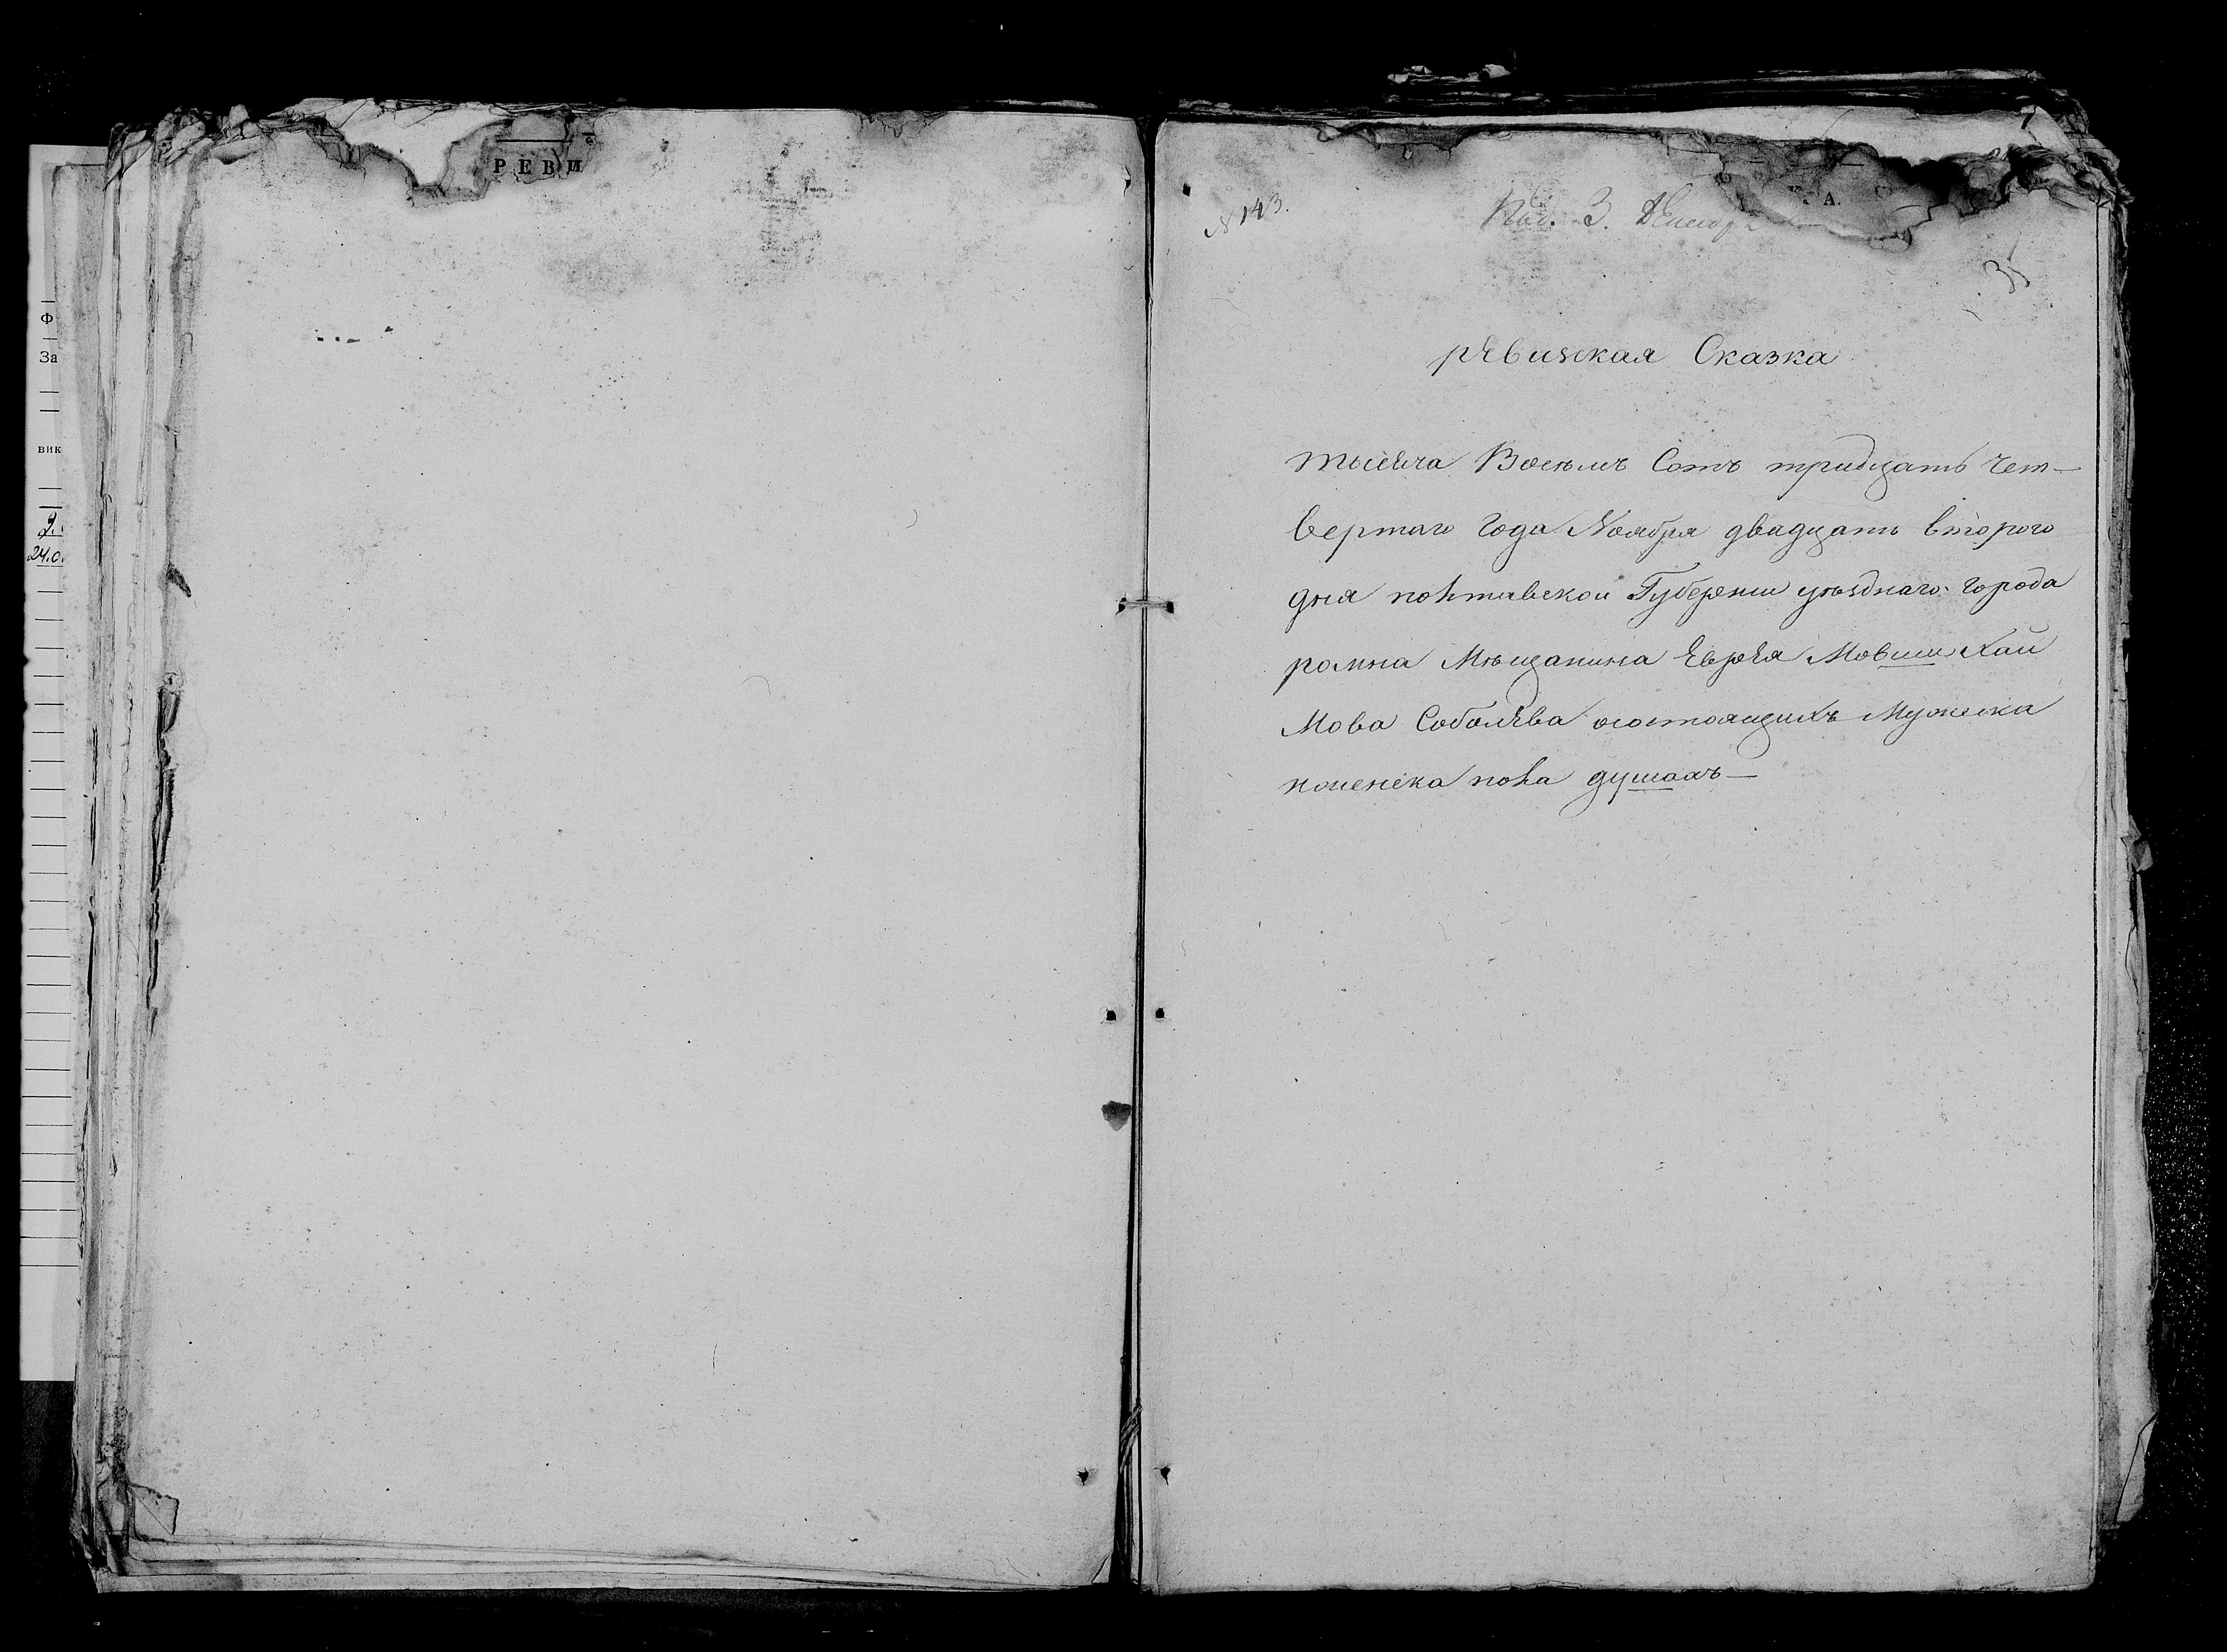 Ф
За
вик
9.
24.0
РЕВИ
7
А.
№ 143.
Под. 3. Декабр
35
рЕвизская Сказка
тысеяча Восемъ Сотъ тридцать чет-
вертаго года Ноября двадцать второго
дня полтавской Губернии уѣзднаго города
ромна Мѣщанина Еврея Мовши Хай
Мова Соболева состоящихъ Мужеска
иженска пола душахъ—